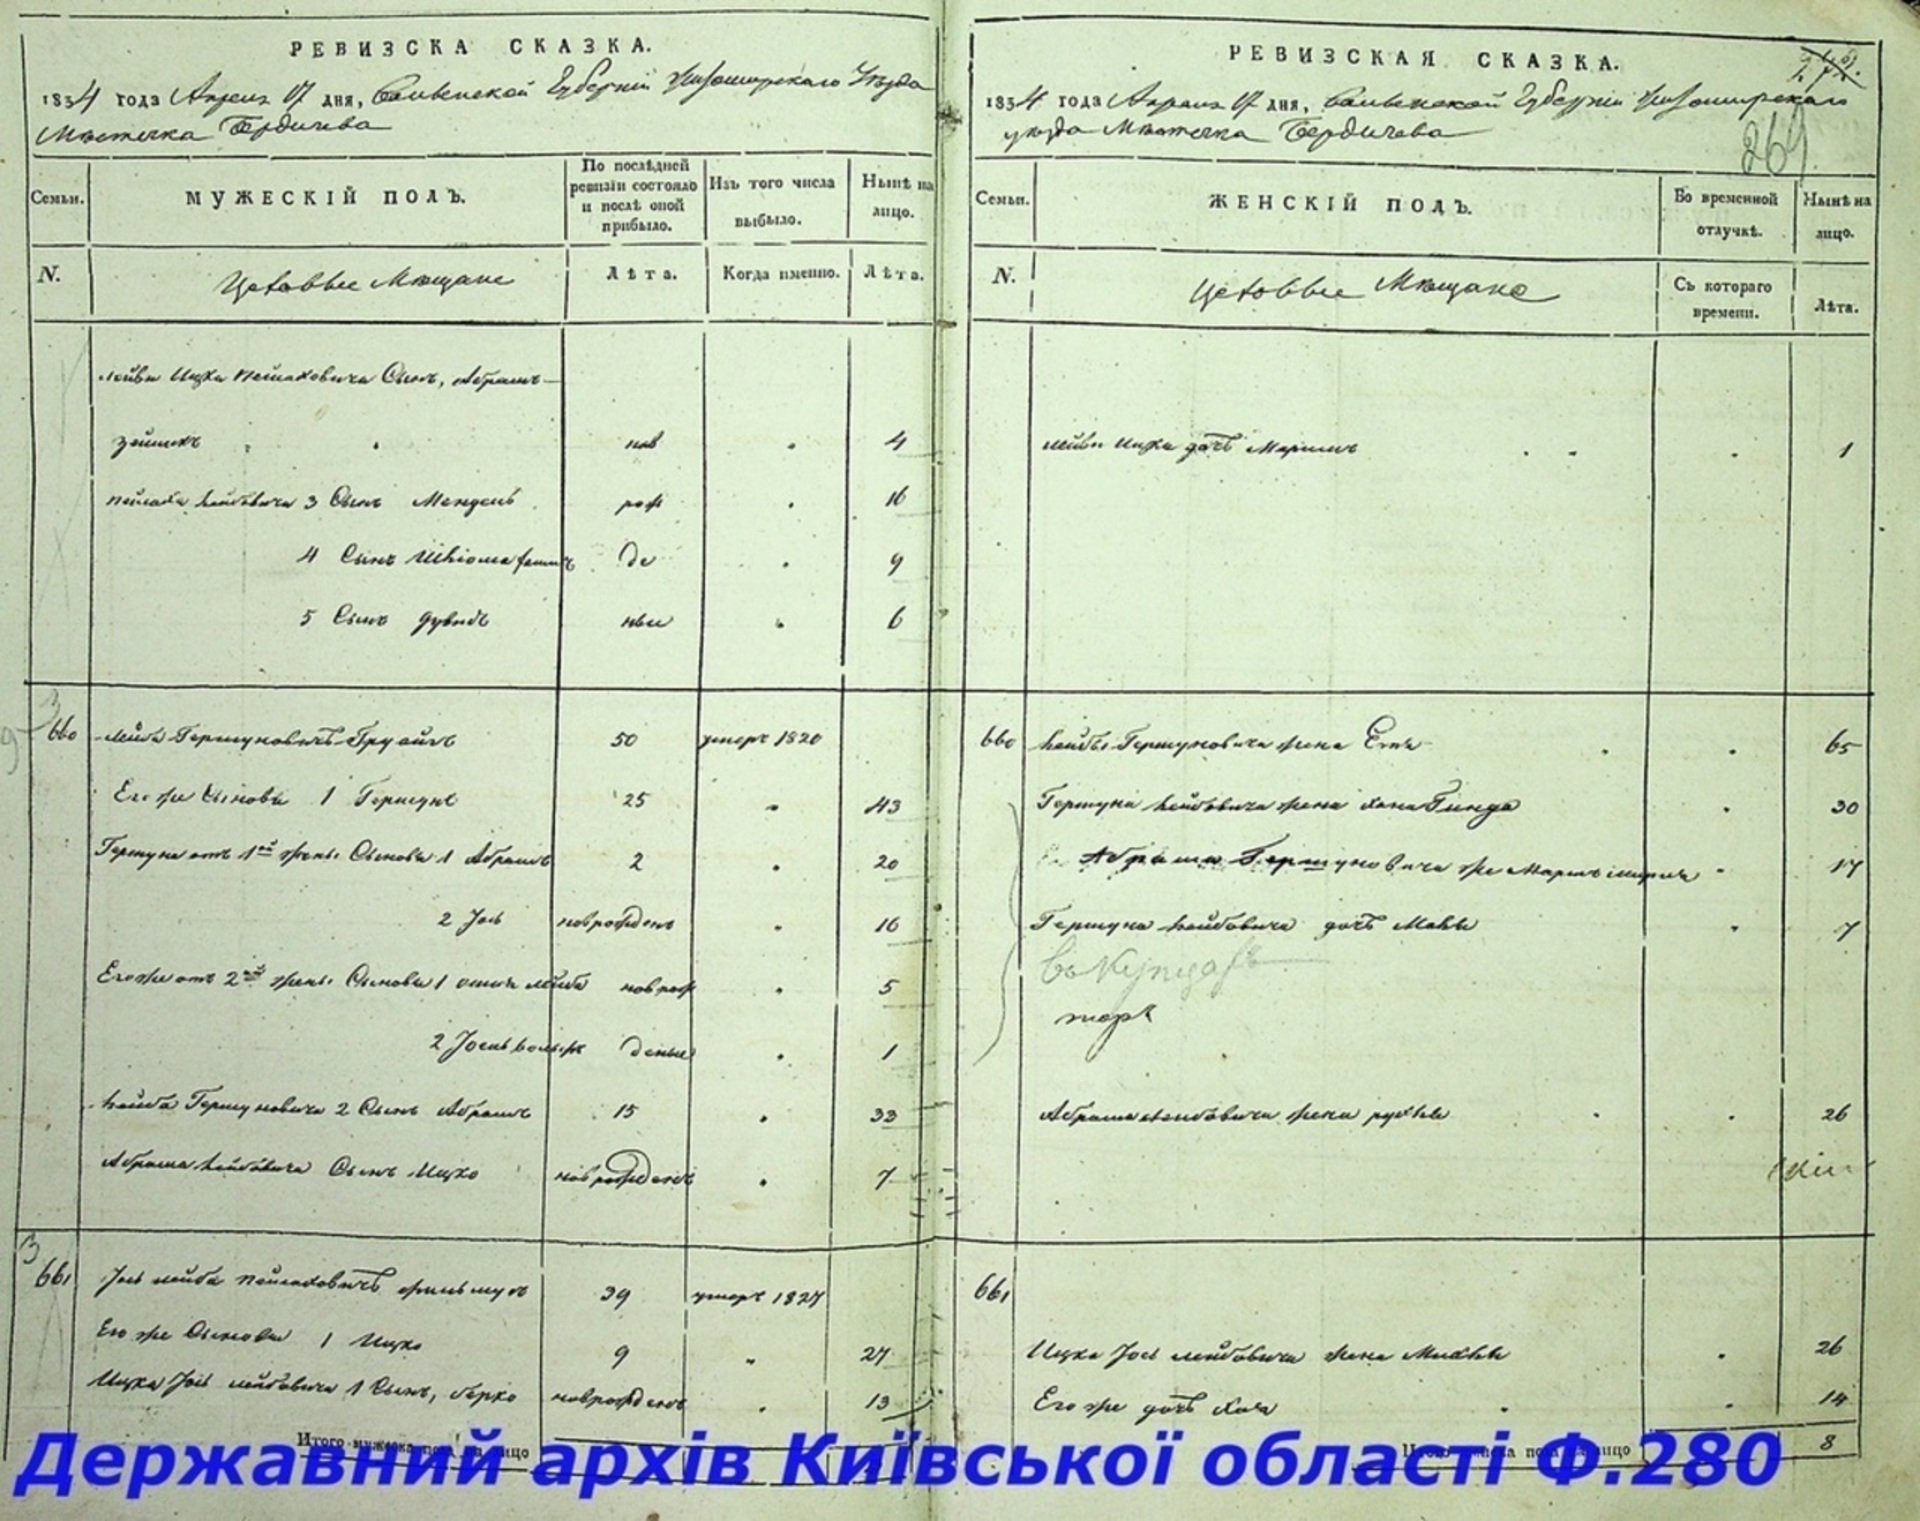 РЕВИЗСКА СКАЗКА.
1834 года Апреля 17 дня, Волынской Губернии Житомирского Уезда
Местечка Бердичева
Семьи.
МУЖЕСКІЙ ПОЛЪ.
По послѣдней ревизіи состояло и послѣ оной прибыло.
Изъ того числа выбыло.
Нынѣ на лицо.
N.
Цеховые Мещане
Лѣта.
Когда именно.
Лѣта.
Лейбы Ицка Пейсаховича Сынъ, Абрамъ
Зейликъ нов 4
Пейсаха Лейбовича 3 Сынъ Мендель рож 16
4 Сынъ Шлiома де 9
5 Сынъ Дувидъ ные 6
660 Лейба Гершуновичъ 50 умеръ 1820
Его же Сыновья 1 Гершунъ 25 43
Гершуна отъ 1ой жены Сыновья 1 Абрамъ 2 20
2 Iось новрожденъ 16
Его же отъ 2ой жены Сыновья 1 Лейба новрож 5
2 Iосель денные 1
Лейба Гершуновича 2 Сынъ Абрамъ 15 33
Абрама Лейбовича Сынъ Ицко новрожденъ 7
661 Iось Лейба Пейсаховичъ 39 умеръ 1827
Его же Сыновья 1 Ицко 9 27
Ицка Iось Лейбовича 1 Сынъ, Берко новрожденъ 13
Итого мужеска пола на лицо
РЕВИЗСКАЯ СКАЗКА.
269
1834 года Апреля 17 дня, Волынской Губерніи Житомирского
уезда Местечка Бердичева
Семьи.
ЖЕНСКІЙ ПОЛЪ.
Во временной отлучкѣ.
Нынѣ на лицо.
N.
Цеховые Мещане
Съ котораго времени.
Лѣта.
Лейбы Ицка дочь Мариамъ 1
660 Лейбы Гершуновича жена 65
Гершуна Лейбовича жена Хана Гинда 30
Абрама Гершуновича же 17
Гершуна Лейбовича дочь 7
Абрама Лейбовича жена Рухля 26
661
Ицка Iось Лейбовича жена 26
Его же дочь Хая 14
Итого женска пола на лицо 8
Державний архів Київської області Ф.280